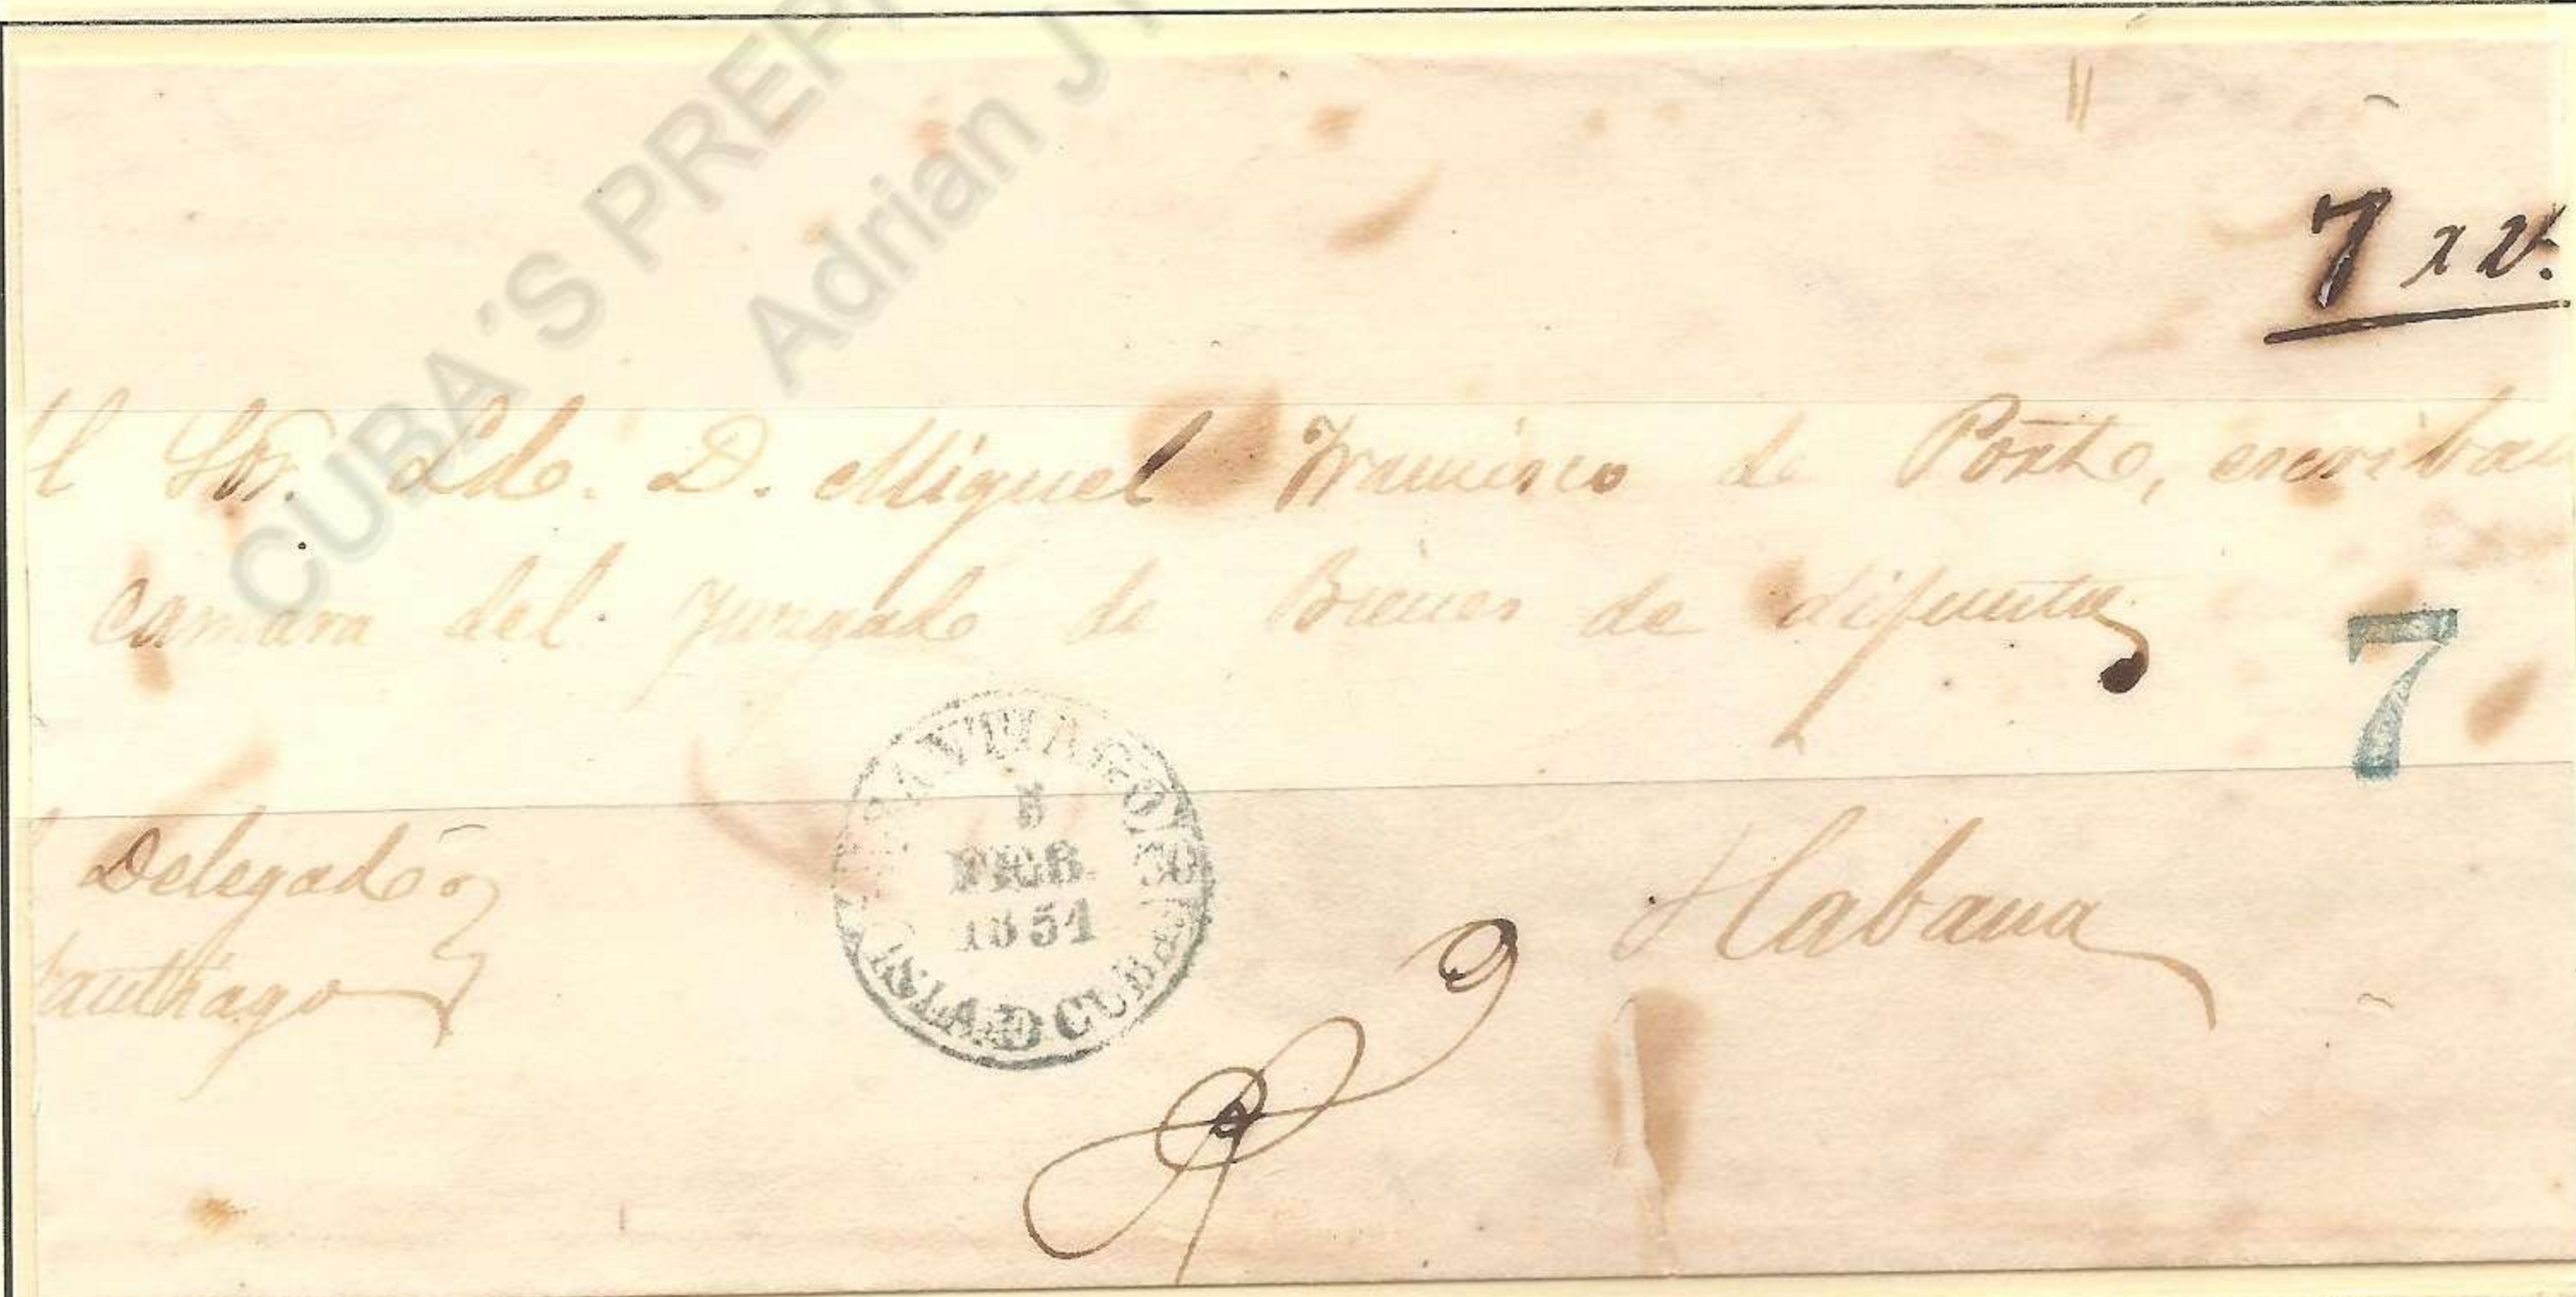 CUBA´S PREP
Adrian J
7 rv.
l Sor. Ldo. D. Miguel Francisco de Porto, escriba
camara del juzgado de Bienes de difuntos
7
SANTIAGO DE
5
FEB.
1851
ISLA D. CUBA
Delegado
Santhiago
Habana